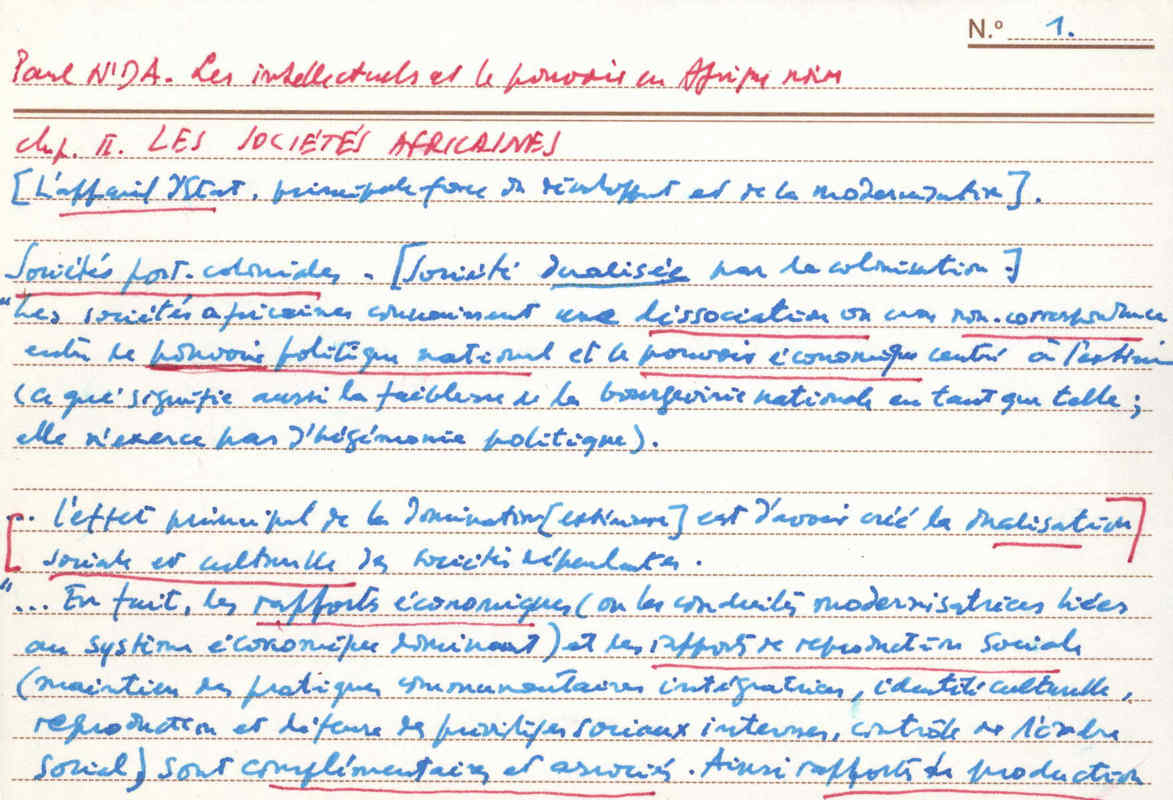 N.º 1.
Paul N'DA. Les intellectuels et le pouvoir en Afrique noire
chap. II. LES SOCIÉTÉS AFRICAINES
[L'appareil d'Etat, principale force de développt et de la modernisation].
Sociétés post-coloniales - [Société dualisée par la colonisation.]
"Les sociétés africaines connaissent une dissociation ou une non-correspondance
entre le pouvoir politique national et le pouvoir économique centré à l'extérieur
(ce qui signifie aussi la faiblesse de la bourgeoisie nationale en tant que telle;
elle n'exerce pas d'hégémonie politique).
.. l'effet principal de la domination [extérieure] est d'avoir créé la dualisation
sociale et culturelle des sociétés dépendantes.
"... En fait, les rapports économiques (ou les conduites modernisatrices liées
au système économique dominant) et les rapports de reproduction sociale
(maintien des pratiques communautaires intégratrices, identité culturelle,
reproduction et défense des privilèges sociaux internes, contrôle de l'ordre
social) sont complémentaires et associés. Ainsi rapports de production